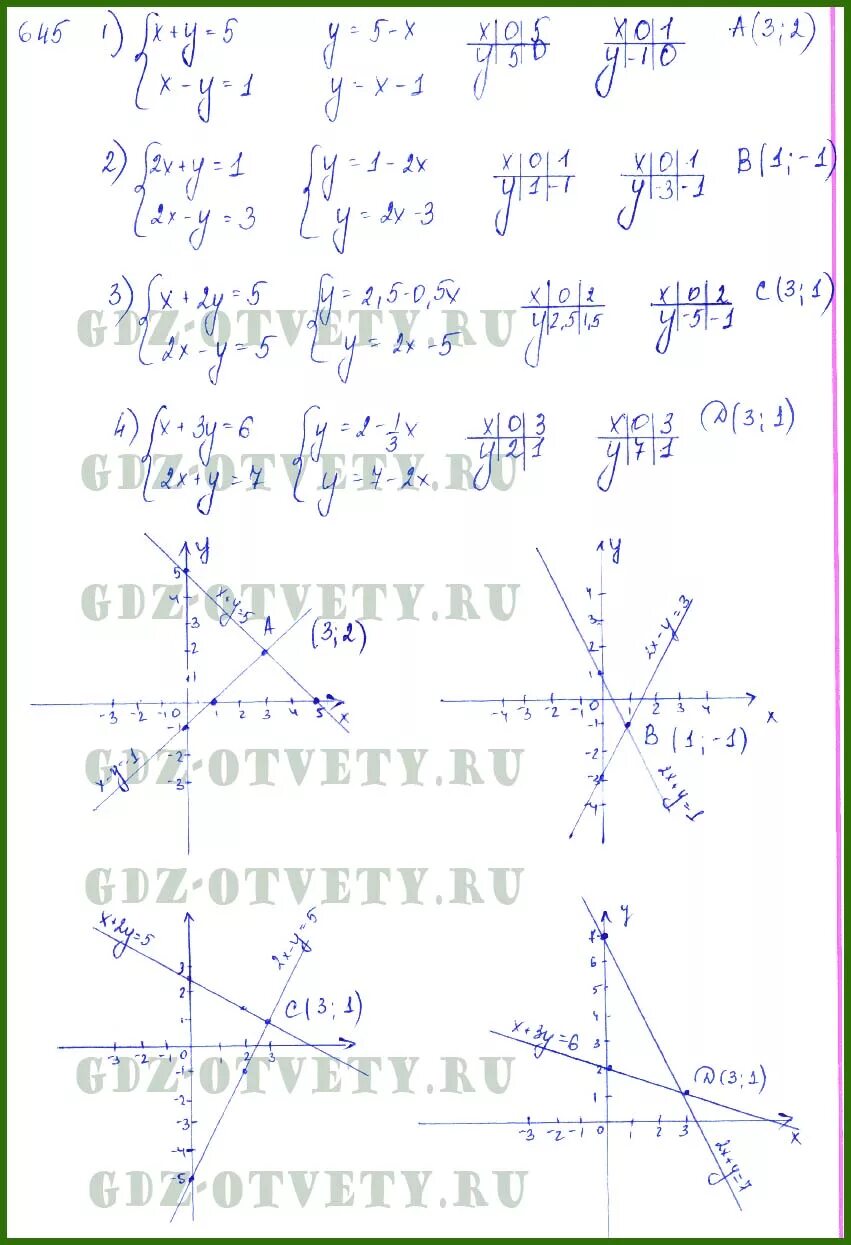 645 1) { x + y = 5 y = 5 - x x | 0 | 5 x | 0 | 1 A (3; 2)
x - y = 1 y = x - 1 y | 5 | 0 y | -1 | 0
2) { 2x + y = 1 { y = 1 - 2x x | 0 | 1 x | 0 | 1 B (1; -1)
2x - y = 3 y = 2x - 3 y | 1 | -1 y | -3 | -1
3) { x + 2y = 5 { y = 2,5 - 0,5x x | 0 | 2 x | 0 | 2 C (3; 1)
2x - y = 5 y = 2x - 5 y | 2,5 | 1,5 y | -5 | -1
GDZ-OTVETY.RU
4) { x + 3y = 6 { y = 2 - 1/3 x x | 0 | 3 x | 0 | 3 D (3; 1)
2x + y = 7 y = 7 - 2x y | 2 | 1 y | 7 | 1
GDZ-OTVETY.RU
y
5
4
3
2
1
x + y = 5
A (3; 2)
-3 -2 -1 0 1 2 3 4 5 x
-1
-2
-3
x - y = 1
y
4
3
2
1
2x - y = 3
-4 -3 -2 -1 0 1 2 3 4
x
-1
-2
-3
-4
B (1; -1)
2x + y = 1
GDZ-OTVETY.RU
GDZ-OTVETY.RU
GDZ-OTVETY.RU
x + 2y = 5
2x - y = 5
3
2
1
C (3; 1)
-3 -2 -1 0 2 3
-1
-2
-3
-4
-5
y
7
6
5
4
3
2
1
x + 3y = 6
D (3; 1)
-3 -2 -1 0 1 2 3
x
2x + y = 7
GDZ-OTVETY.RU
GDZ-OTVETY.RU